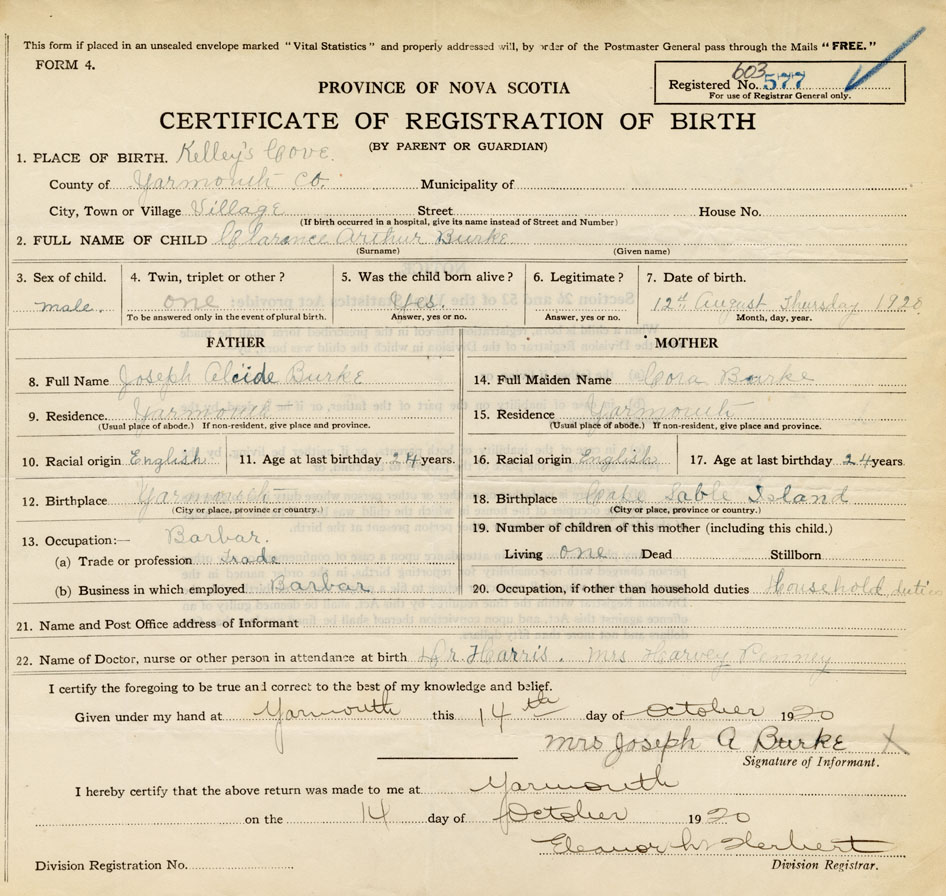 This form if placed in an unsealed envelope marked "Vital Statistics" and properly addressed will, by order of the Postmaster General pass through the Mails "FREE."
FORM 4.
603
Registered No. 577
For use of Registrar General only.
PROVINCE OF NOVA SCOTIA
CERTIFICATE OF REGISTRATION OF BIRTH
(BY PARENT OR GUARDIAN)
1. PLACE OF BIRTH. Kelley's Cove.
County of Yarmouth Co. Municipality of
City, Town or Village Village Street House No.
(If birth occurred in a hospital, give its name instead of Street and Number)
2. FULL NAME OF CHILD Clarance Arthur Burke
(Surname) (Given name)
3. Sex of child. 4. Twin, triplet or other? 5. Was the child born alive? 6. Legitimate? 7. Date of birth.
male. one Yes. 12th August Thursday 1920
To be answered only in the event of plural birth. Answer, yes or no. Answer, yes or no. Month, day, year.
FATHER MOTHER
8. Full Name Joseph Alcide Burke 14. Full Maiden Name Cora Burke
9. Residence. Yarmouth 15. Residence Yarmouth
(Usual place of abode.) If non-resident, give place and province. (Usual place of abode.) If non-resident, give place and province.
10. Racial origin English 11. Age at last birthday 24 years. 16. Racial origin English 17. Age at last birthday 24 years.
12. Birthplace Yarmouth 18. Birthplace Cape Sable Island
(City or place, province or country.) (City or place, province or country.)
13. Occupation:— Barbar. 19. Number of children of this mother (including this child.)
(a) Trade or profession Trade Living one Dead Stillborn
(b) Business in which employed Barbar 20. Occupation, if other than household duties Household duties
21. Name and Post Office address of Informant
22. Name of Doctor, nurse or other person in attendance at birth Dr. Harris. Mrs Harvey Penney
I certify the foregoing to be true and correct to the best of my knowledge and belief.
Given under my hand at Yarmouth this 14th day of October 1920
Mrs Joseph A Burke X
Signature of Informant.
I hereby certify that the above return was made to me at Yarmouth
on the 14 day of October 1920
Eleanor Herbert
Division Registration No. Division Registrar.